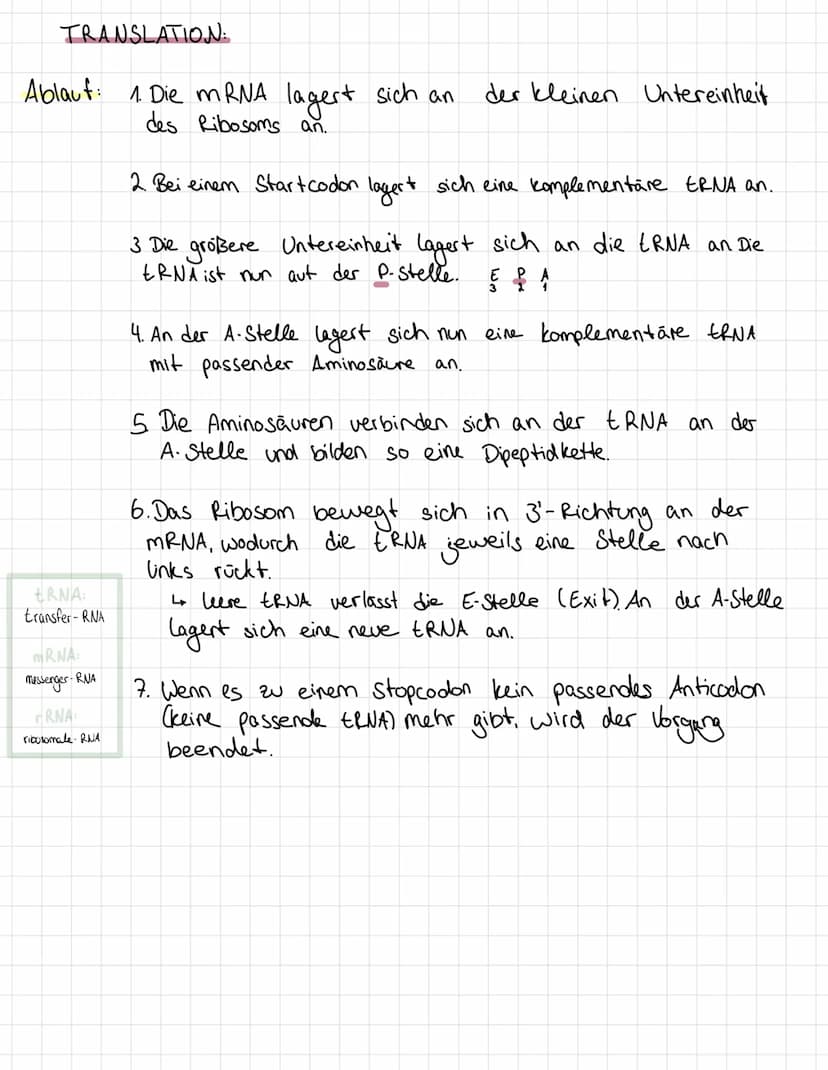 TRANSLATION:
Ablauf: 1. Die mRNA lagert sich an der kleinen Untereinheit
des Ribosoms an.
2. Bei einem Startcodon lagert sich eine komplementäre tRNA an.
3 Die größere Untereinheit lagert sich an die tRNA an Die
tRNA ist nun auf der P-Stelle. E P A
3 2 1
4. An der A-Stelle lagert sich nun eine komplementäre tRNA
mit passender Aminosäure an.
5 Die Aminosäuren verbinden sich an der tRNA an der
A-Stelle und bilden so eine Dipeptidkette.
6. Das Ribosom bewegt sich in 3'-Richtung an der
mRNA, wodurch die tRNA jeweils eine Stelle nach
links rückt.
↳ leere tRNA verlässt die E-Stelle (Exit). An der A-Stelle
lagert sich eine neue tRNA an.
7. Wenn es zu einem Stopcodon kein passendes Anticodon
(keine passende tRNA) mehr gibt, wird der Vorgang
beendet.
tRNA:
transfer-RNA
mRNA:
messenger-RNA
rRNA:
ribosomale-RNA